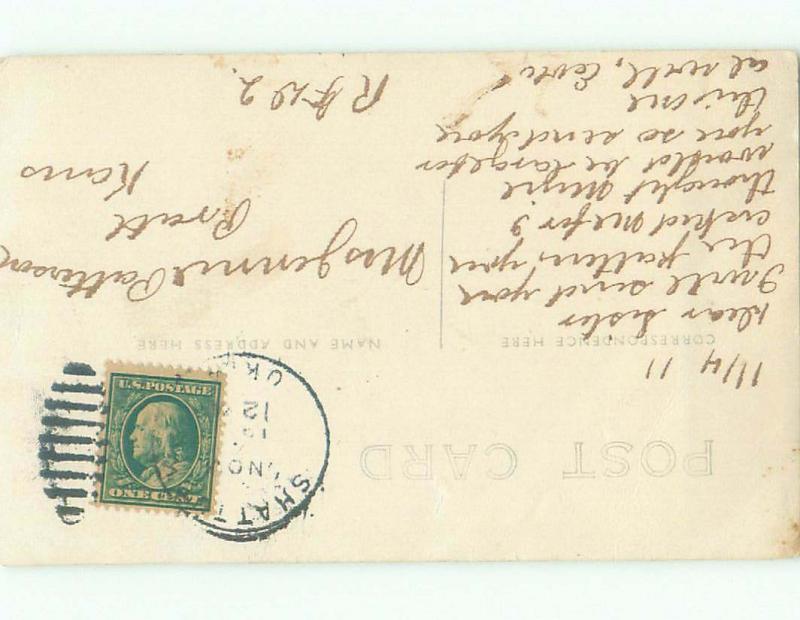 POST CARD
11/4 11
CORRESPONDENCE HERE
NAME AND ADDRESS HERE
Dear Sister
I will send you
the pattern you
asked me for I
thought
would be larger for
you so send you
this one
al well, Eva
Mrs Jennie Patterson
Pratt
Kans
R F D 2
SHATT
OKLA
NO
12
U.S. POSTAGE
ONE CENT